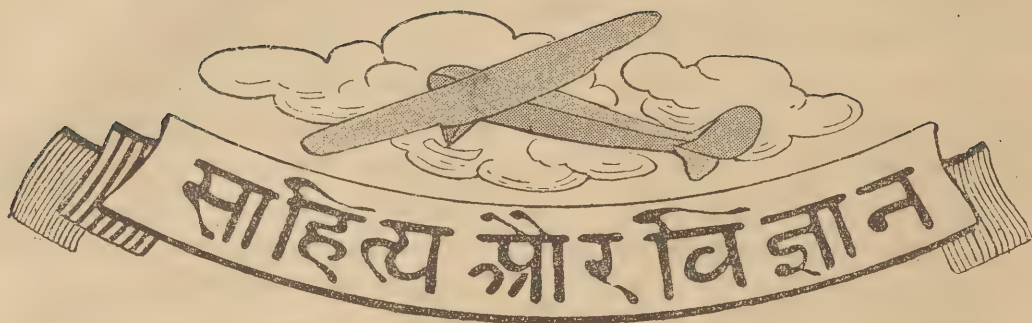 साहित्य और विज्ञान